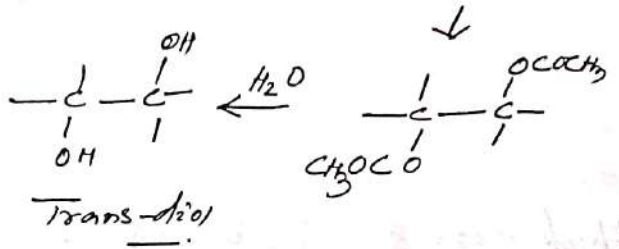 OH
— C — C — ← H₂O — C — C — OCOCH₃
OH CH₃OCO
Trans-diol